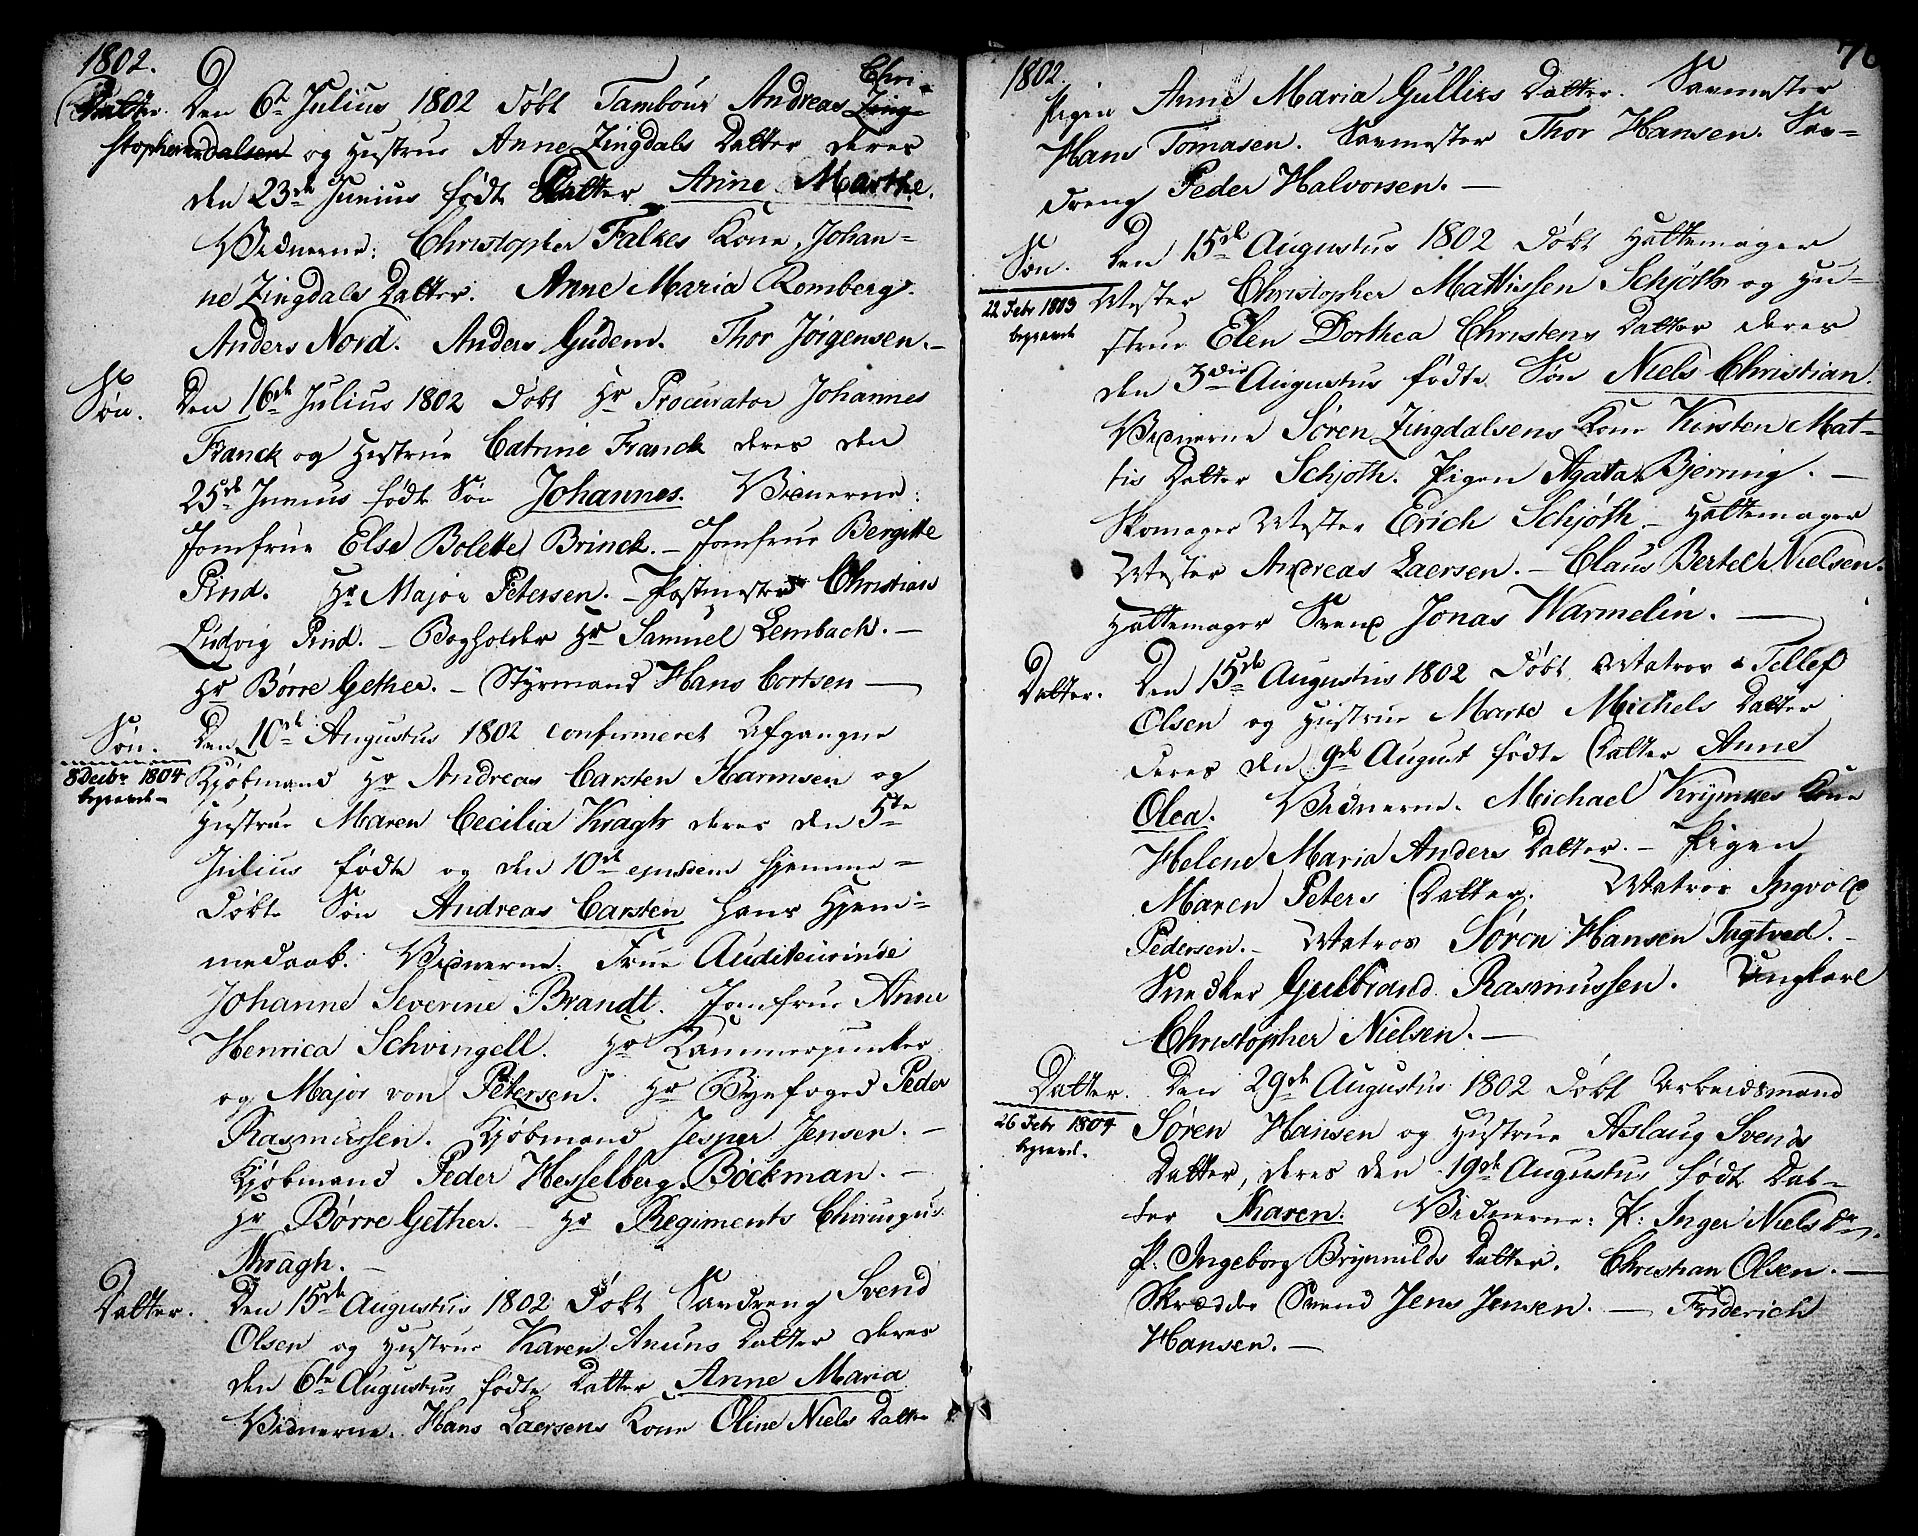 1802.
Datter. Den 6te Julius 1802 døbt Tambour Andreas Zing- Chri-
stophersen dalsen og Hustrue Anne Zingdals Datter deres
den 23de Junius fødte Datter Anne Marthe.
Vidnerne: Christopher Falkes Kone, Johan-
ne Zingdals Datter. Anne Maria Romberg.
Anders Nord. Anders Gudem. Thor Jørgensen.–
Søn. Den 16de Julius 1802 døbt Hr Procurator Johannes
Franck og Hustrue Catrine Franck deres den
25de Junius fødte Søn Johannes. Vidnerne:
Jomfrue Else Bolette Brinck.– Jomfrue Bergitte
Pind. Hr Major Petersen.– Postmester Christian
Ludvig Pind.– Bogholder Hr Samuel Lembach.–
Hr Børre Gether.– Styrmand Hans Cortsen –
Søn. Den 10de Augustus 1802 confirmeret Afgangne
8 Decbr 1804 Kjøbmand Hr Andreas Carsten Harmsen og
begravet– Hustrue Maren Cecilia Kragh deres den 5te
Julius fødte og den 10de ejusdem hjemme-
døbte Søn Andreas Carsten hans Hjem-
medaab. Vidnerne: Frue Auditeurinde
Johanne Severine Brandt. Jomfrue Anne
Henrica Schvingell. Hr Kammerjunker
og Major von Petersen. Hr Byefoged Peder
Rasmussen. Kjøbmand Jesper Jensen.–
Kjøbmand Peder Hesselberg Böckman.–
Hr Børre Gether.– Hr Regiments Chirurgus
Kragh.–
Datter. Den 15de Augustus 1802 døbt Saudreng Svend
Olsen og Hustrue Karen Anuns Datter deres
den 6te Augustus fødte Datter Anne Maria
Vidnerne. Hans Laersens Kone Oline Niels Datter
1802.
Pigen Anne Maria Gulliks Datter. Saumester
Hans Tomasen. Saumester Thor Hansen. Sau-
dreng Peder Halvorsen.–
Søn. Den 15de Augustus 1802 døbt Hattemager
22 Febr 1803 Mester Christopher Mattissen Schjøth og Hu-
begravet strue Elen Dorthea Christens Datter deres
den 3die Augustus fødte Søn Niels Christian.
Vidnerne Søren Zingdalsens Kone Kirsten Mat-
tis Datter Schjøth. Pigen Agata Bjerring.–
Skomager Mester Erich Schjøth.– Hattemager
Mester Andreas Laersen.– Claus Bertel Nielsen.
Hattemager Svend Jonas Warmelin.–
Datter. Den 15de Augustus 1802 døbt Matros Tellef
Olsen og Hustrue Marte Michels Datter
deres den 9de August fødte Datter Anne
Olea. Vidnerne. Michael Krymnes Kone
Helene Maria Anders Datter.– Pigen
Maren Peters Datter. Matros Ingvold
Pedersen.– Matros Søren Hansen Tugtved.–
Snedker Gulbrand Rasmussen. Ungkarl
Christopher Nielsen.–
Datter. Den 29de Augustus 1802 døbt Arbeidsmand
26 Febr 1804 Søren Hansen og Hustrue Aslaug Svends
begravet. Datter, deres den 19de Augustus fødte Dat-
ter Maren. Vidnerne: P: Inger Niels Dr.
P. Ingeborg Brynnilds Datter. Christian Olsen.–
Skrædder Svend Jens Jensen.– Friderich
Hansen.–